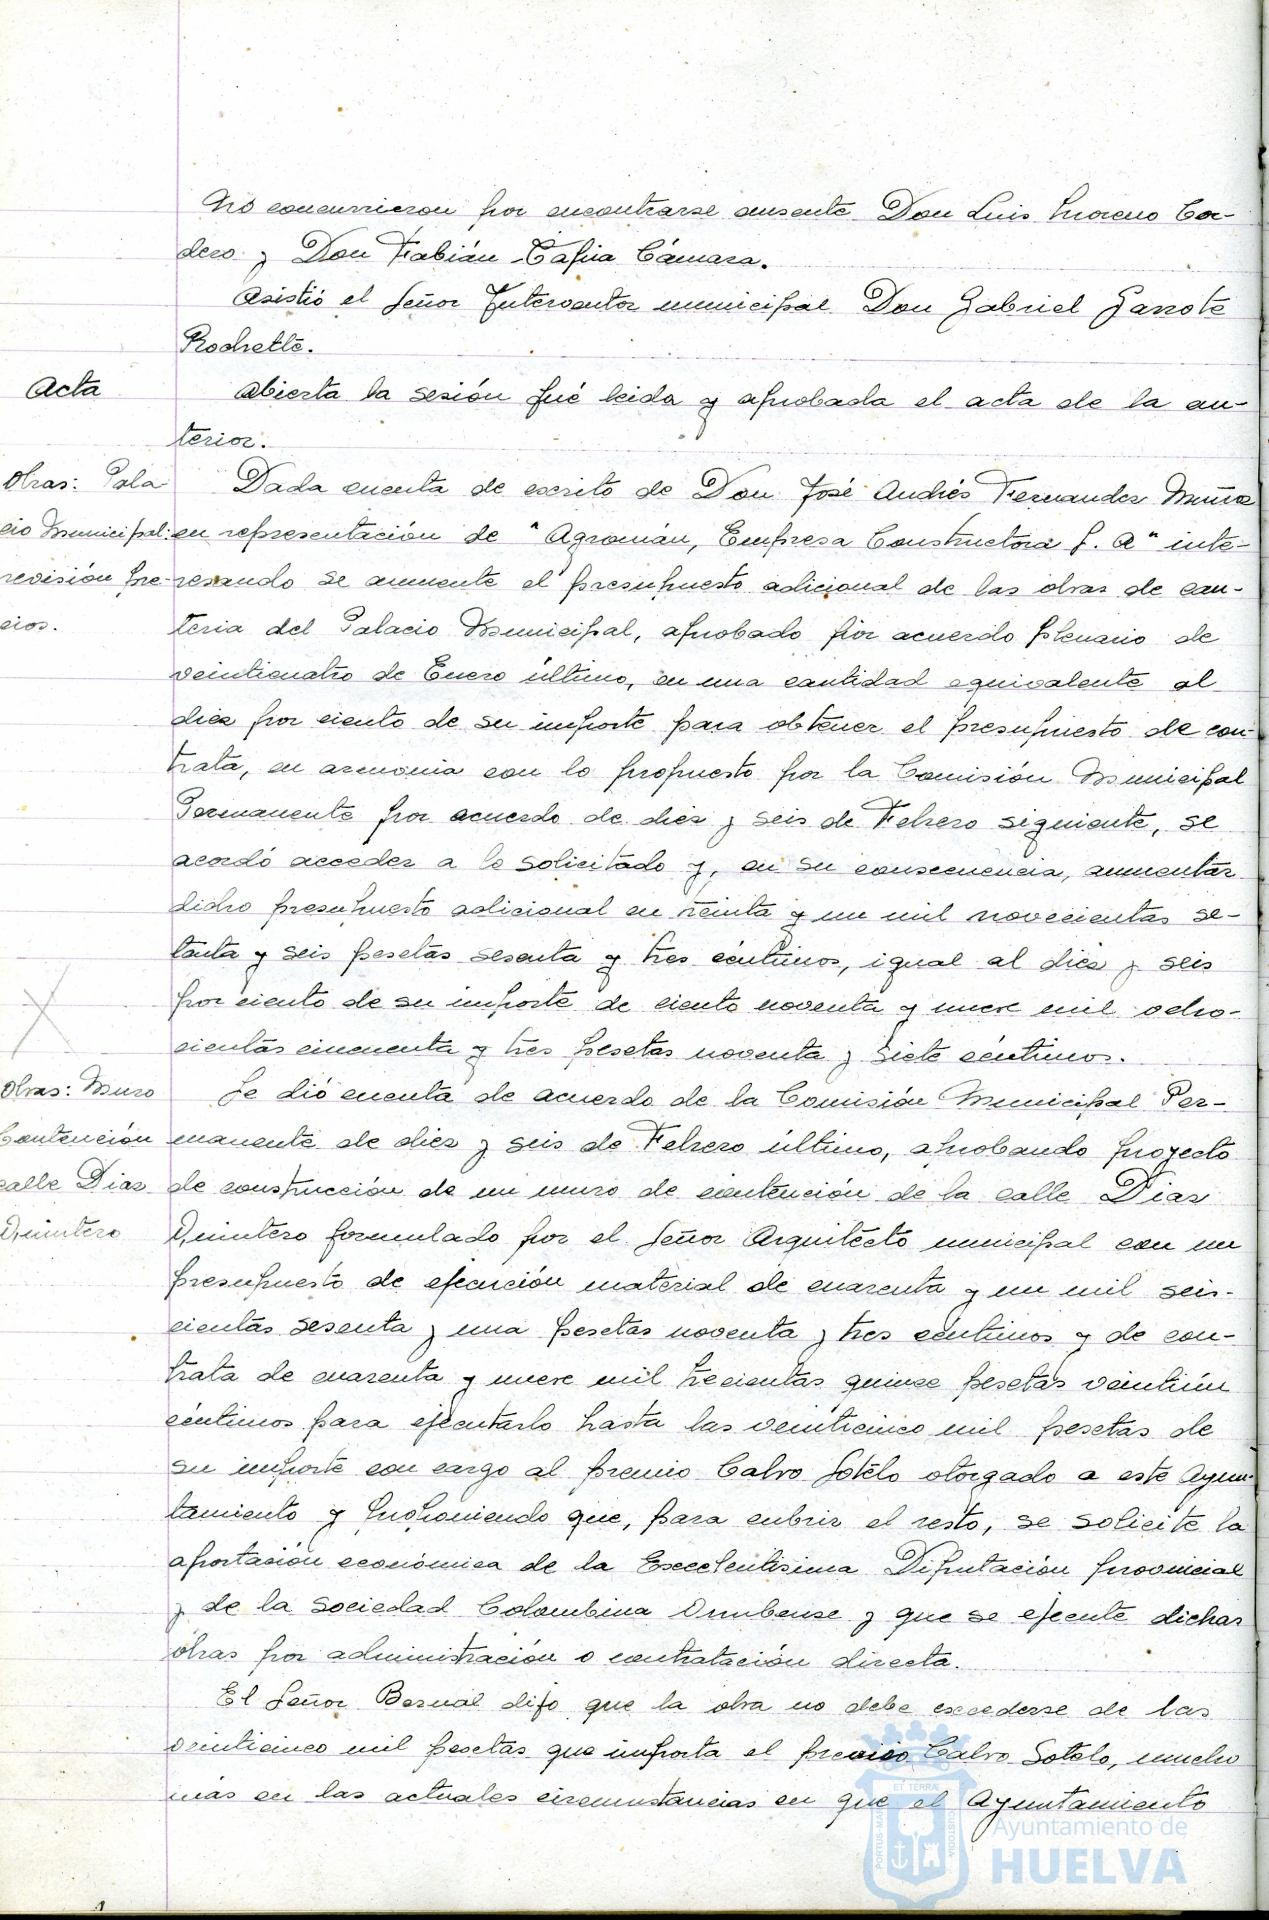 No concurrieron por encontrarse ausente Don Luis Moreno Cor-
dero y Don Fabián Tapia Cámara.
Asistió el Señor Interventor municipal Don Gabriel Garrote
Rochette.
Acta
Abierta la sesión fué leida y aprobada el acta de la an-
terior.
Obras: Pala-
cio Municipal:
revisión pre-
cios.
Dada cuenta de escrito de Don José Andrés Fernandez Muñoz
en representación de "Agromán, Empresa Constructora S. A" inte-
resando se aumente el presupuesto adicional de las obras de can-
teria del Palacio Municipal, aprobado por acuerdo plenario de
veinticuatro de Enero último, en una cantidad equivalente al
diez por ciento de su importe para obtener el presupuesto de con-
trata, en armonia con lo propuesto por la Comisión Municipal
Permanente por acuerdo de diez y seis de Febrero siguiente, se
acordó acceder a lo solicitado y, en su consecuencia, aumentar
dicho presupuesto adicional en treinta y un mil novecientas se-
tenta y seis pesetas sesenta y tres céntimos, igual al diez y seis
por ciento de su importe de ciento noventa y nueve mil ocho-
cientas cincuenta y tres pesetas noventa y siete céntimos.
Obras: Muro
Contención
calle Diaz
Quintero
Se dió cuenta de acuerdo de la Comisión Municipal Per-
manente de diez y seis de Febrero último, aprobando proyecto
de construcción de un muro de contención de la calle Diaz
Quintero formulado por el Señor Arquitecto municipal con un
presupuesto de ejecución material de cuarenta y un mil seis-
cientas sesenta y una pesetas noventa y tres céntimos y de con-
trata de cuarenta y nueve mil trecientas quince pesetas veintiún
céntimos para ejecutarlo hasta las veinticinco mil pesetas de
su importe con cargo al premio Calvo Sotelo otorgado a este Ayun-
tamiento y proponiendo que, para cubrir el resto, se solicite la
aportación económica de la Excelentisima Diputación provincial
y de la Sociedad Colombina Onubense y que se ejecute dichas
obras por administración o contratación directa.
El Señor Bernal dijo que la obra no debe excederse de las
veinticinco mil pesetas que importa el premio Calvo Sotelo, mucho
más en las actuales circunstancias en que el Ayuntamiento
ET TERRAE
PORTUS MARIS
CUSTODIA
Ayuntamiento de
HUELVA